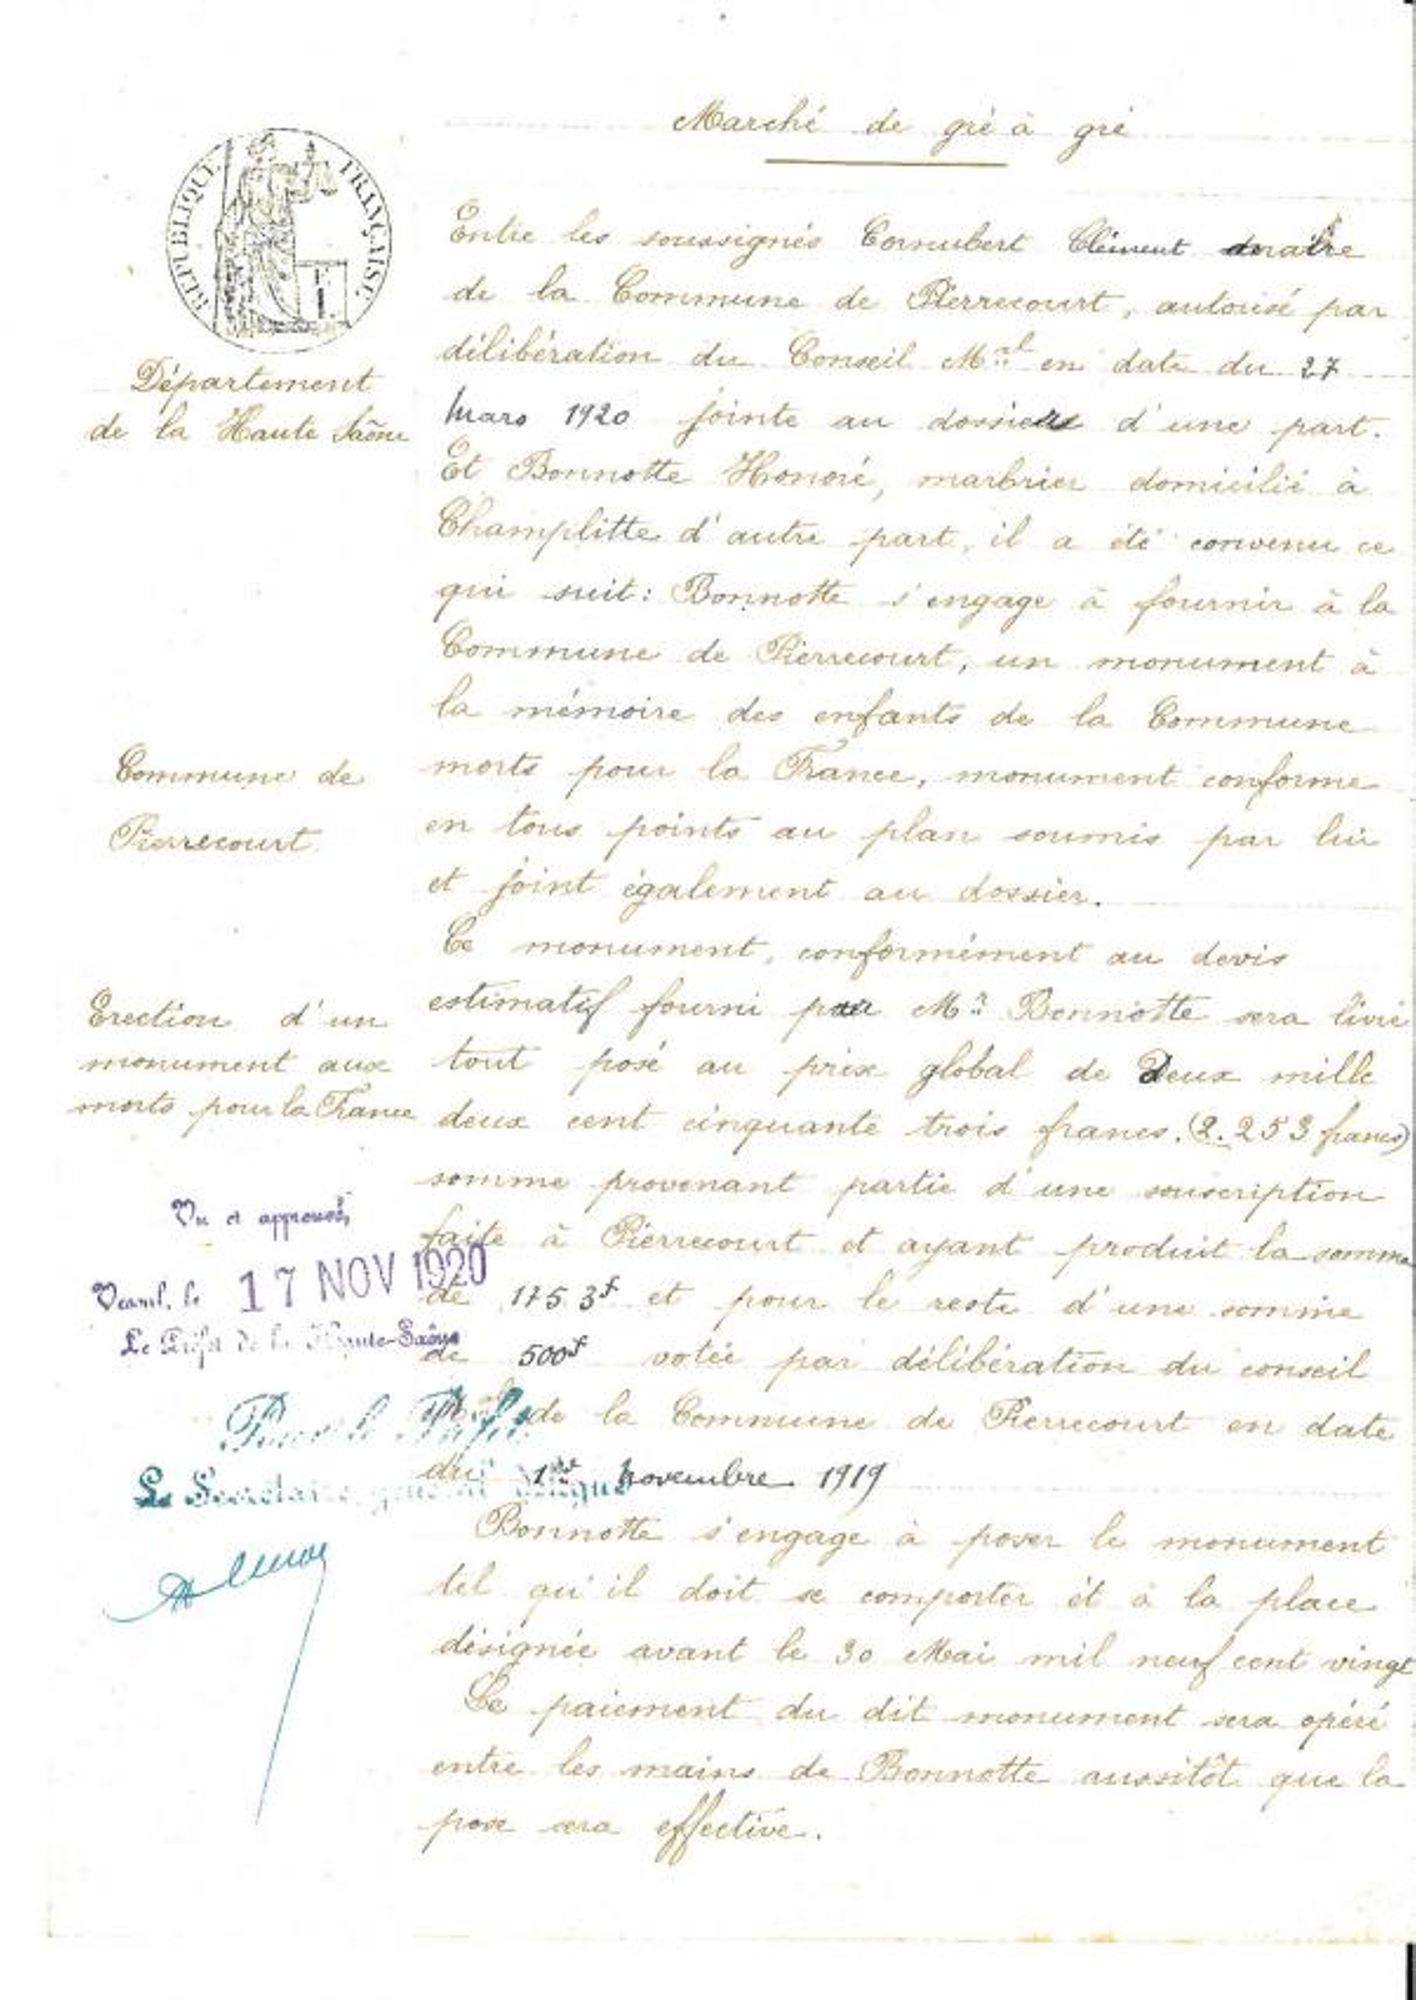 Marché de gré à gré
RÉPUBLIQUE FRANÇAISE
Département
de la Haute Saône
Commune de
Pierrecourt
Erection d'un
monument aux
morts pour la France
Vu et approuvé,
Vesoul, le 17 NOV 1920
Le Préfet de la Haute-Saône
Pour le Préfet
Le Secrétaire général délégué
Entre les soussignés Cornubert Clément maire
de la Commune de Pierrecourt, autorisé par
délibération du Conseil Mal en date du 27
Mars 1920 jointe au dossier d'une part.
Et Bonnotte Honoré, marbrier domicilié à
Champlitte d'autre part, il a été convenu ce
qui suit : Bonnotte s'engage à fournir à la
Commune de Pierrecourt, un monument à
la mémoire des enfants de la Commune
morts pour la France, monument conforme
en tous points au plan soumis par lui
et joint également au dossier.
Ce monument, conformément au devis
estimatif fourni par Mr Bonnotte sera livré
tout posé au prix global de Deux mille
deux cent cinquante trois francs. (2.253 francs)
somme provenant partie d'une souscription
faite à Pierrecourt et ayant produit la somme
de 1753f et pour le reste d'une somme
de 500f votée par délibération du conseil
Mal de la Commune de Pierrecourt en date
du 1er novembre 1919
Bonnotte s'engage à poser le monument
tel qu'il doit se comporter et à la place
désignée avant le 30 Mai mil neuf cent vingt
Le paiement du dit monument sera opéré
entre les mains de Bonnotte aussitôt que la
pose sera effective.